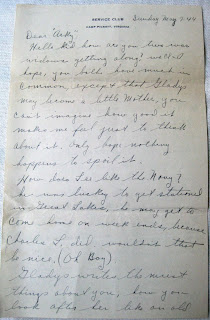 SERVICE CLUB
CAMP PICKETT, VIRGINIA
Sunday May 7-44
Dear "Aetty"
Hello Kid how are you two war
widows getting along! well I
hope, you both have much in
common, except that Gladys
may become a little Mother, you
can't imagine how good it
makes me feel great to think
about it. Only hope nothing
happens to spoil it.
How does Les like the Navy?
he was lucky to get stationed
in Great Lakes, he may get to
come home on week ends, because
Charles S. did, wouldn't that
be nice. (Oh Boy)
Gladys writes the nicest
things about you, how you
look after her like an old